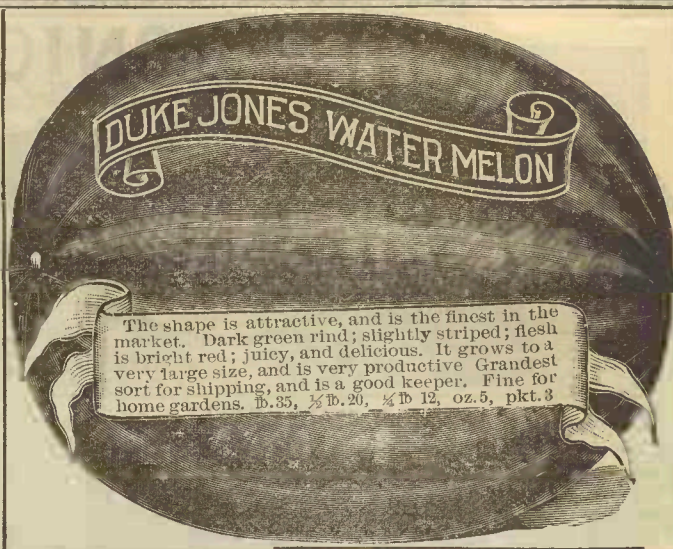 DUKE JONES WATER MELON
The shape is attractive, and is the finest in the
market. Dark green rind; slightly striped; flesh
is bright red; juicy, and delicious. It grows to a
very large size, and is very productive Grandest
sort for shipping, and is a good keeper. Fine for
home gardens. ℔.35, ½℔.20, ¼℔ 12, oz.5, pkt.3